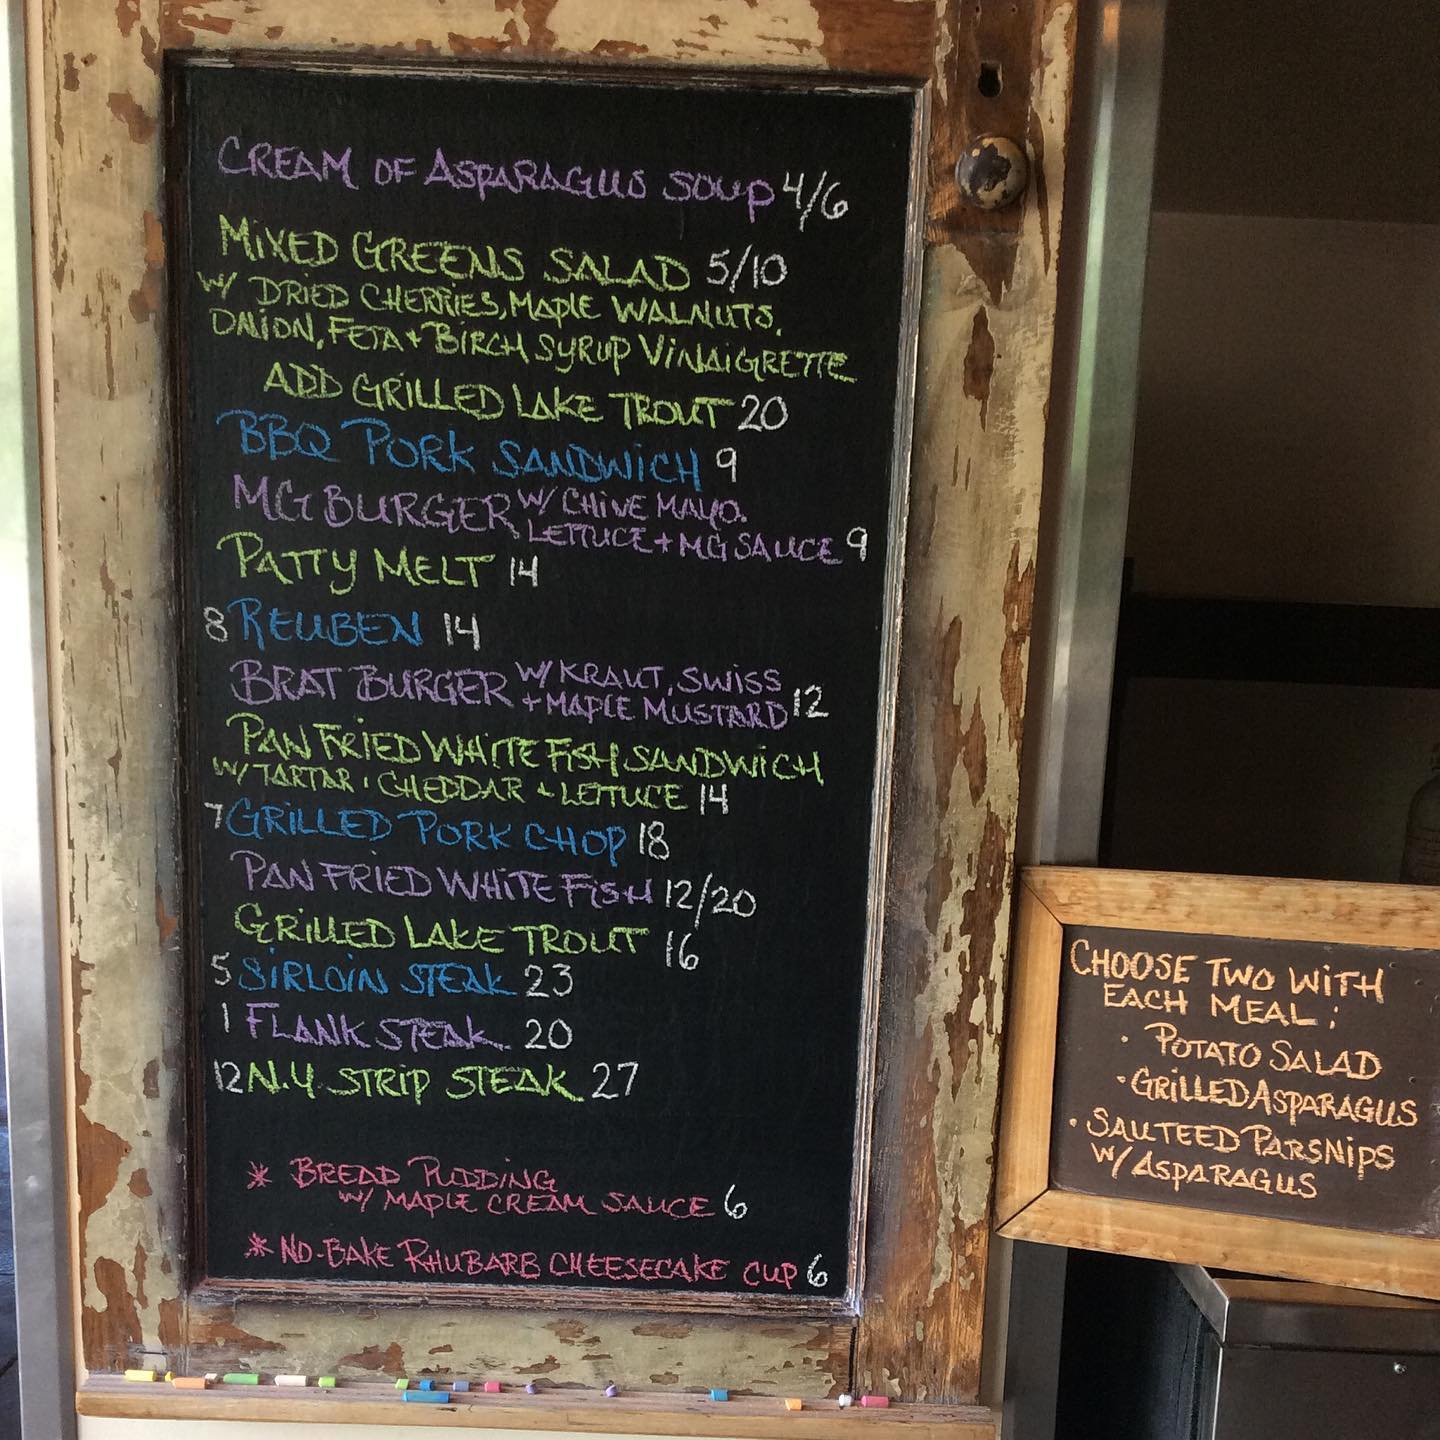 CREAM OF ASPARAGUS SOUP 4/6
MIXED GREENS SALAD 5/10
W/ DRIED CHERRIES, MAPLE WALNUTS,
ONION, FETA + BIRCH SYRUP VINAIGRETTE
ADD GRILLED LAKE TROUT 20
BBQ PORK SANDWICH 9
MG BURGER W/ CHIVE MAYO.
LETTUCE + MG SAUCE 9
PATTY MELT 14
8 REUBEN 14
BRAT BURGER W/ KRAUT, SWISS
+ MAPLE MUSTARD 12
PAN FRIED WHITE FISH SANDWICH
W/ TARTAR, CHEDDAR + LETTUCE 14
7 GRILLED PORK CHOP 18
PAN FRIED WHITE FISH 12/20
GRILLED LAKE TROUT 16
5 SIRLOIN STEAK 23
1 FLANK STEAK 20
12 N.Y. STRIP STEAK 27
* BREAD PUDDING
W/ MAPLE CREAM SAUCE 6
* NO-BAKE RHUBARB CHEESECAKE CUP 6
CHOOSE TWO WITH
EACH MEAL:
• POTATO SALAD
• GRILLED ASPARAGUS
• SAUTEED PARSNIPS
W/ ASPARAGUS